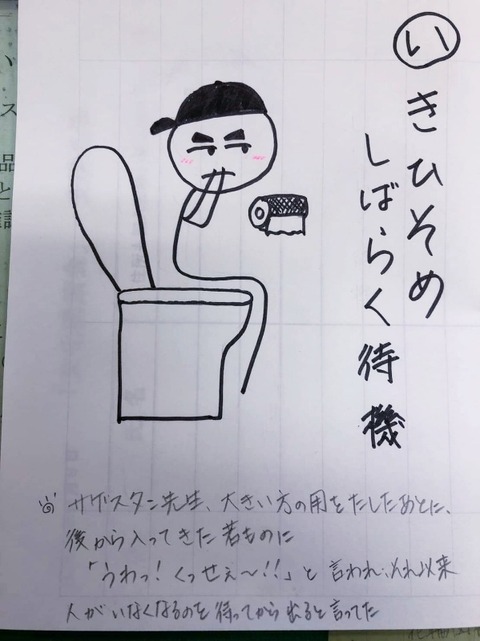 いきひそめ
しばらく待機
サザスタン先生、大きい方の用をたしたあとに、
後から入ってきた若ものに
「うわっ!くっせぇ〜!!」と言われ、それ以来
人がいなくなるのを待ってから出ると言ってた